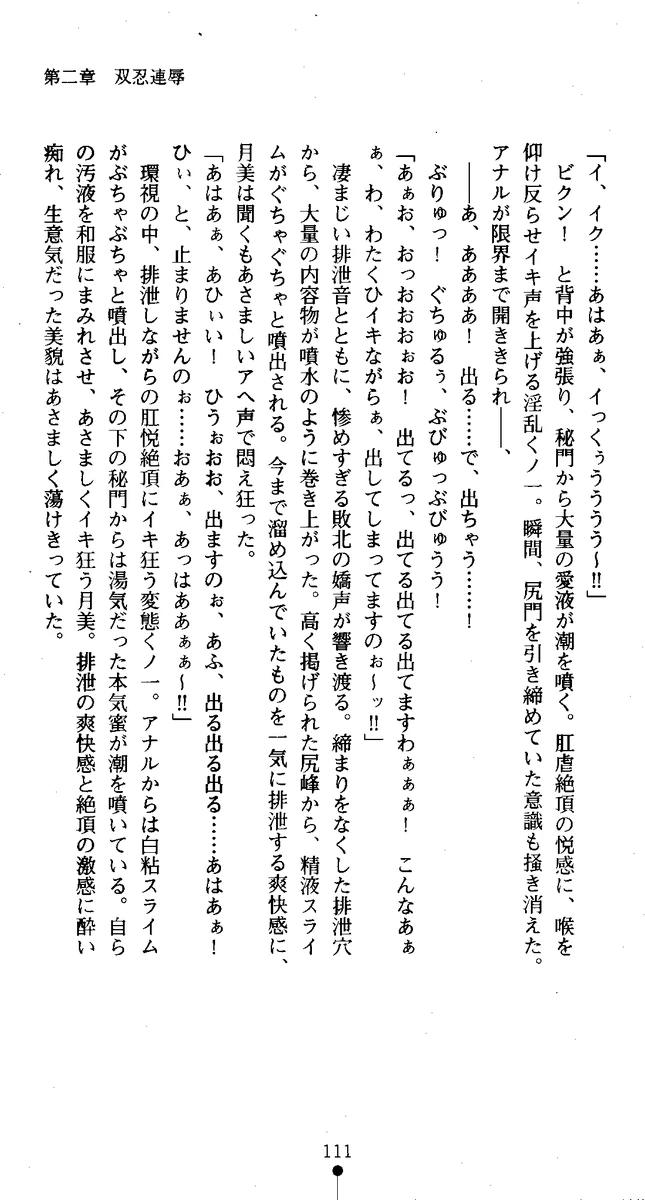 第二章　双忍連辱
「イ、イク……あはあぁ、イっくぅうううう～!!」
　ビクン！　と背中が強張り、秘門から大量の愛液が潮を噴く。肛虐絶頂の悦感に、喉を
仰け反らせイキ声を上げる淫乱くノ一。瞬間、尻門を引き締めていた意識も掻き消えた。
アナルが限界まで開ききられ――、
　――あ、ああああ！　出る……で、出ちゃう……！
　ぶりゅっ！　ぐちゅるぅ、ぶびゅっぶびゅうう！
「あぁお、おっおおおぉお！　出てるっ、出てる出てる出てますわぁぁぁ！　こんなあぁ
ぁ、わ、わたくひイキながらぁ、出してしまってますのぉ～ッ!!」
　凄まじい排泄音とともに、惨めすぎる敗北の嬌声が響き渡る。締まりをなくした排泄穴
から、大量の内容物が噴水のように巻き上がった。高く掲げられた尻峰から、精液スライ
ムがぐちゃぐちゃと噴出される。今まで溜め込んでいたものを一気に排泄する爽快感に、
月美は聞くもあさましいアヘ声で悶え狂った。
「あはあぁ、あひぃい！　ひうぉおお、出ますのぉ、あふ、出る出る出る……あはあぁ！
ひぃ、と、止まりませんのぉ……おあぁ、あっはああぁぁ～!!」
　環視の中、排泄しながらの肛悦絶頂にイキ狂う変態くノ一。アナルからは白粘スライム
がぶちゃぶちゃと噴出し、その下の秘門からは湯気だった本気蜜が潮を噴いている。自ら
の汚液を和服にまみれさせ、あさましくイキ狂う月美。排泄の爽快感と絶頂の激感に酔い
痴れ、生意気だった美貌はあさましく蕩けきっていた。
111